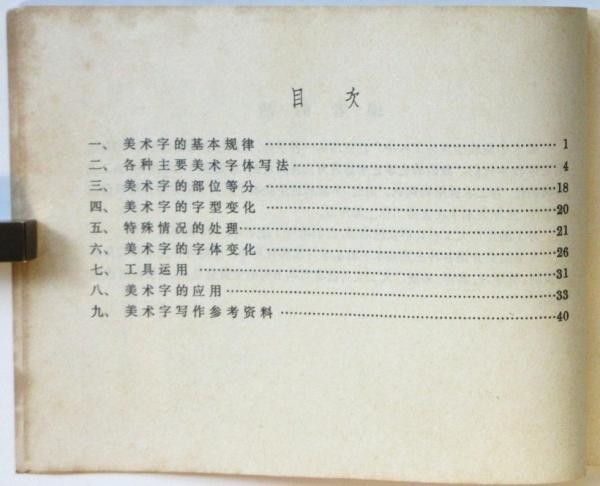 目 次
一、美术字的基本规律……1
二、各种主要美术字体写法……4
三、美术字的部位等分……18
四、美术字的字型变化……20
五、特殊情况的处理……21
六、美术字的字体变化……26
七、工具运用……31
八、美术字的应用……33
九、美术字写作参考资料……40